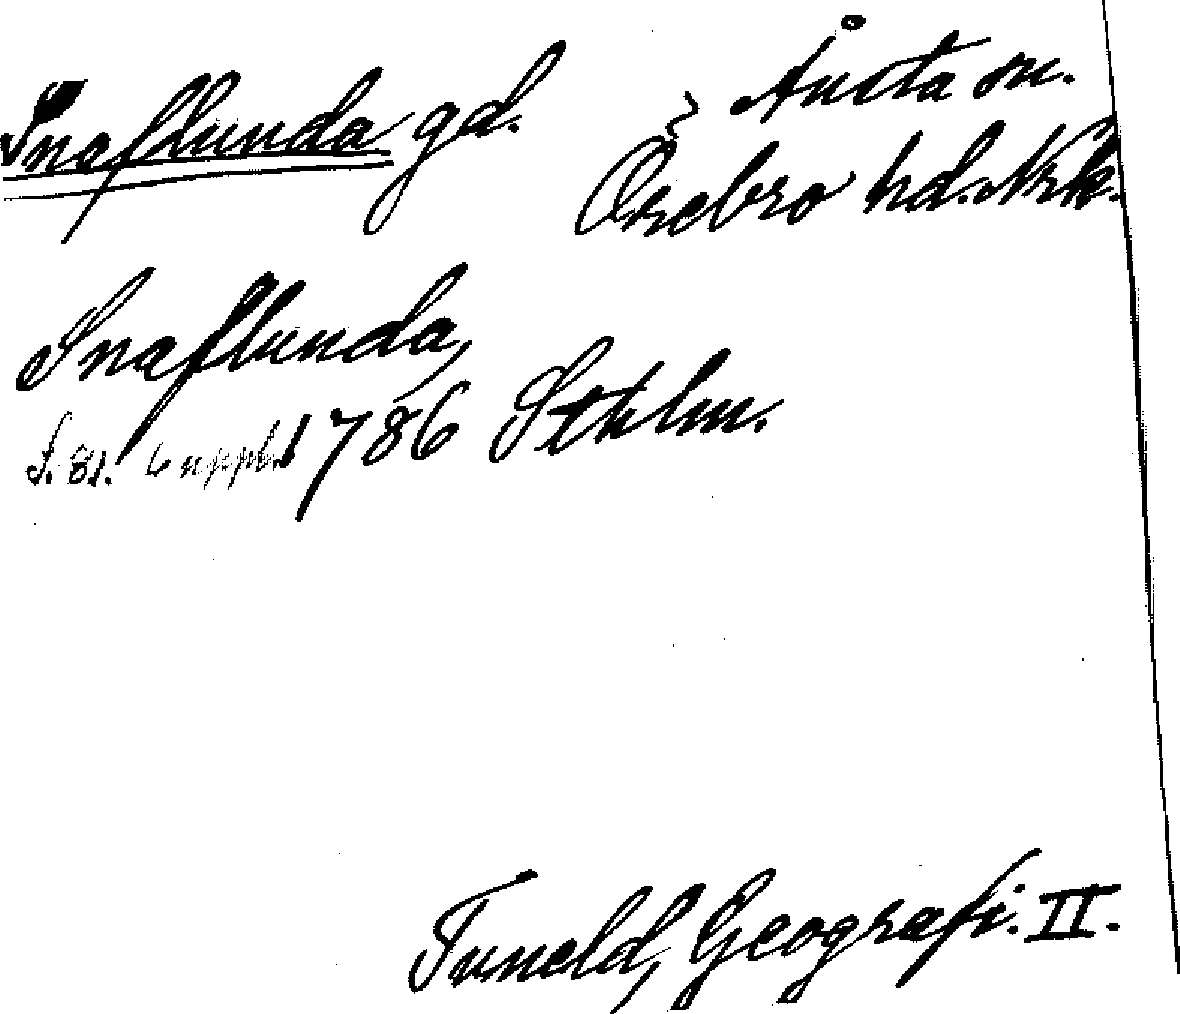 Snaflunda gd. Ånsta sn.
Örebro hd. Nrk.
Snaflunda,
S. 81. 6 uppl. 1786 Sthlm.
Tuneld, Geografi. II.